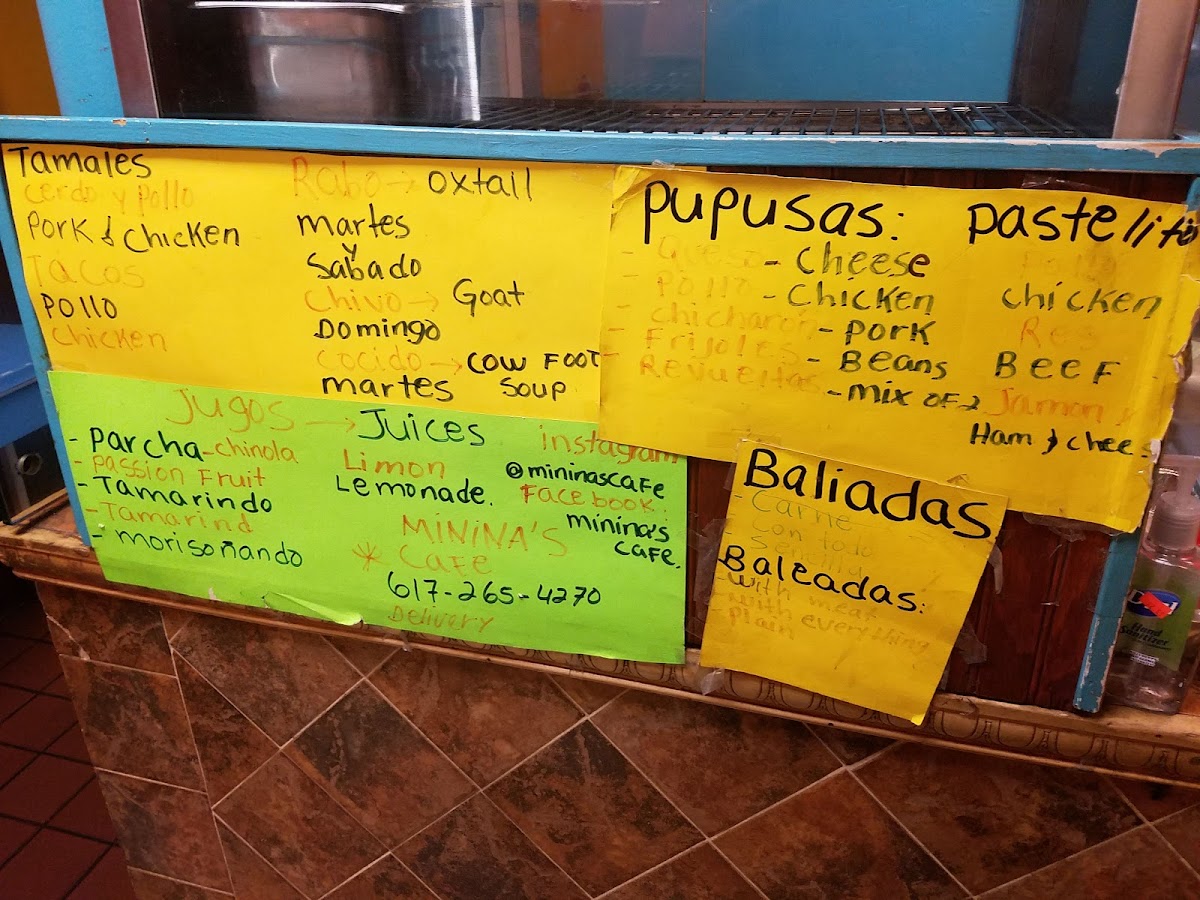 Tamales
Cerdo y Pollo
Pork & Chicken
Tacos
Pollo
Chicken
Rabo → oxtail
martes
y
Sabado
Chivo → Goat
Domingo
Cocido → cow foot
martes soup
Pupusas:
- Queso - cheese
- Pollo - chicken
- Chicharon - pork
- Frijoles - Beans
- Revueltas - mix of 2
Pastelito
Pollo
chicken
Res
Beef
Jamon y
Ham y chees
Jugos → Juices
- Parcha - chinola
- Passion Fruit
- Tamarindo
- Tamarind
- morisoñando
Limon
Lemonade.
instagram
@mininascafe
Facebook.
minina's
cafe.
Minina's
* Cafe
617-265-4270
Delivery
Baliadas
- Carne
- con todo
- Sencilla
Baleadas:
- with meat
- with everything
- Plain
Hand
Sanitizer